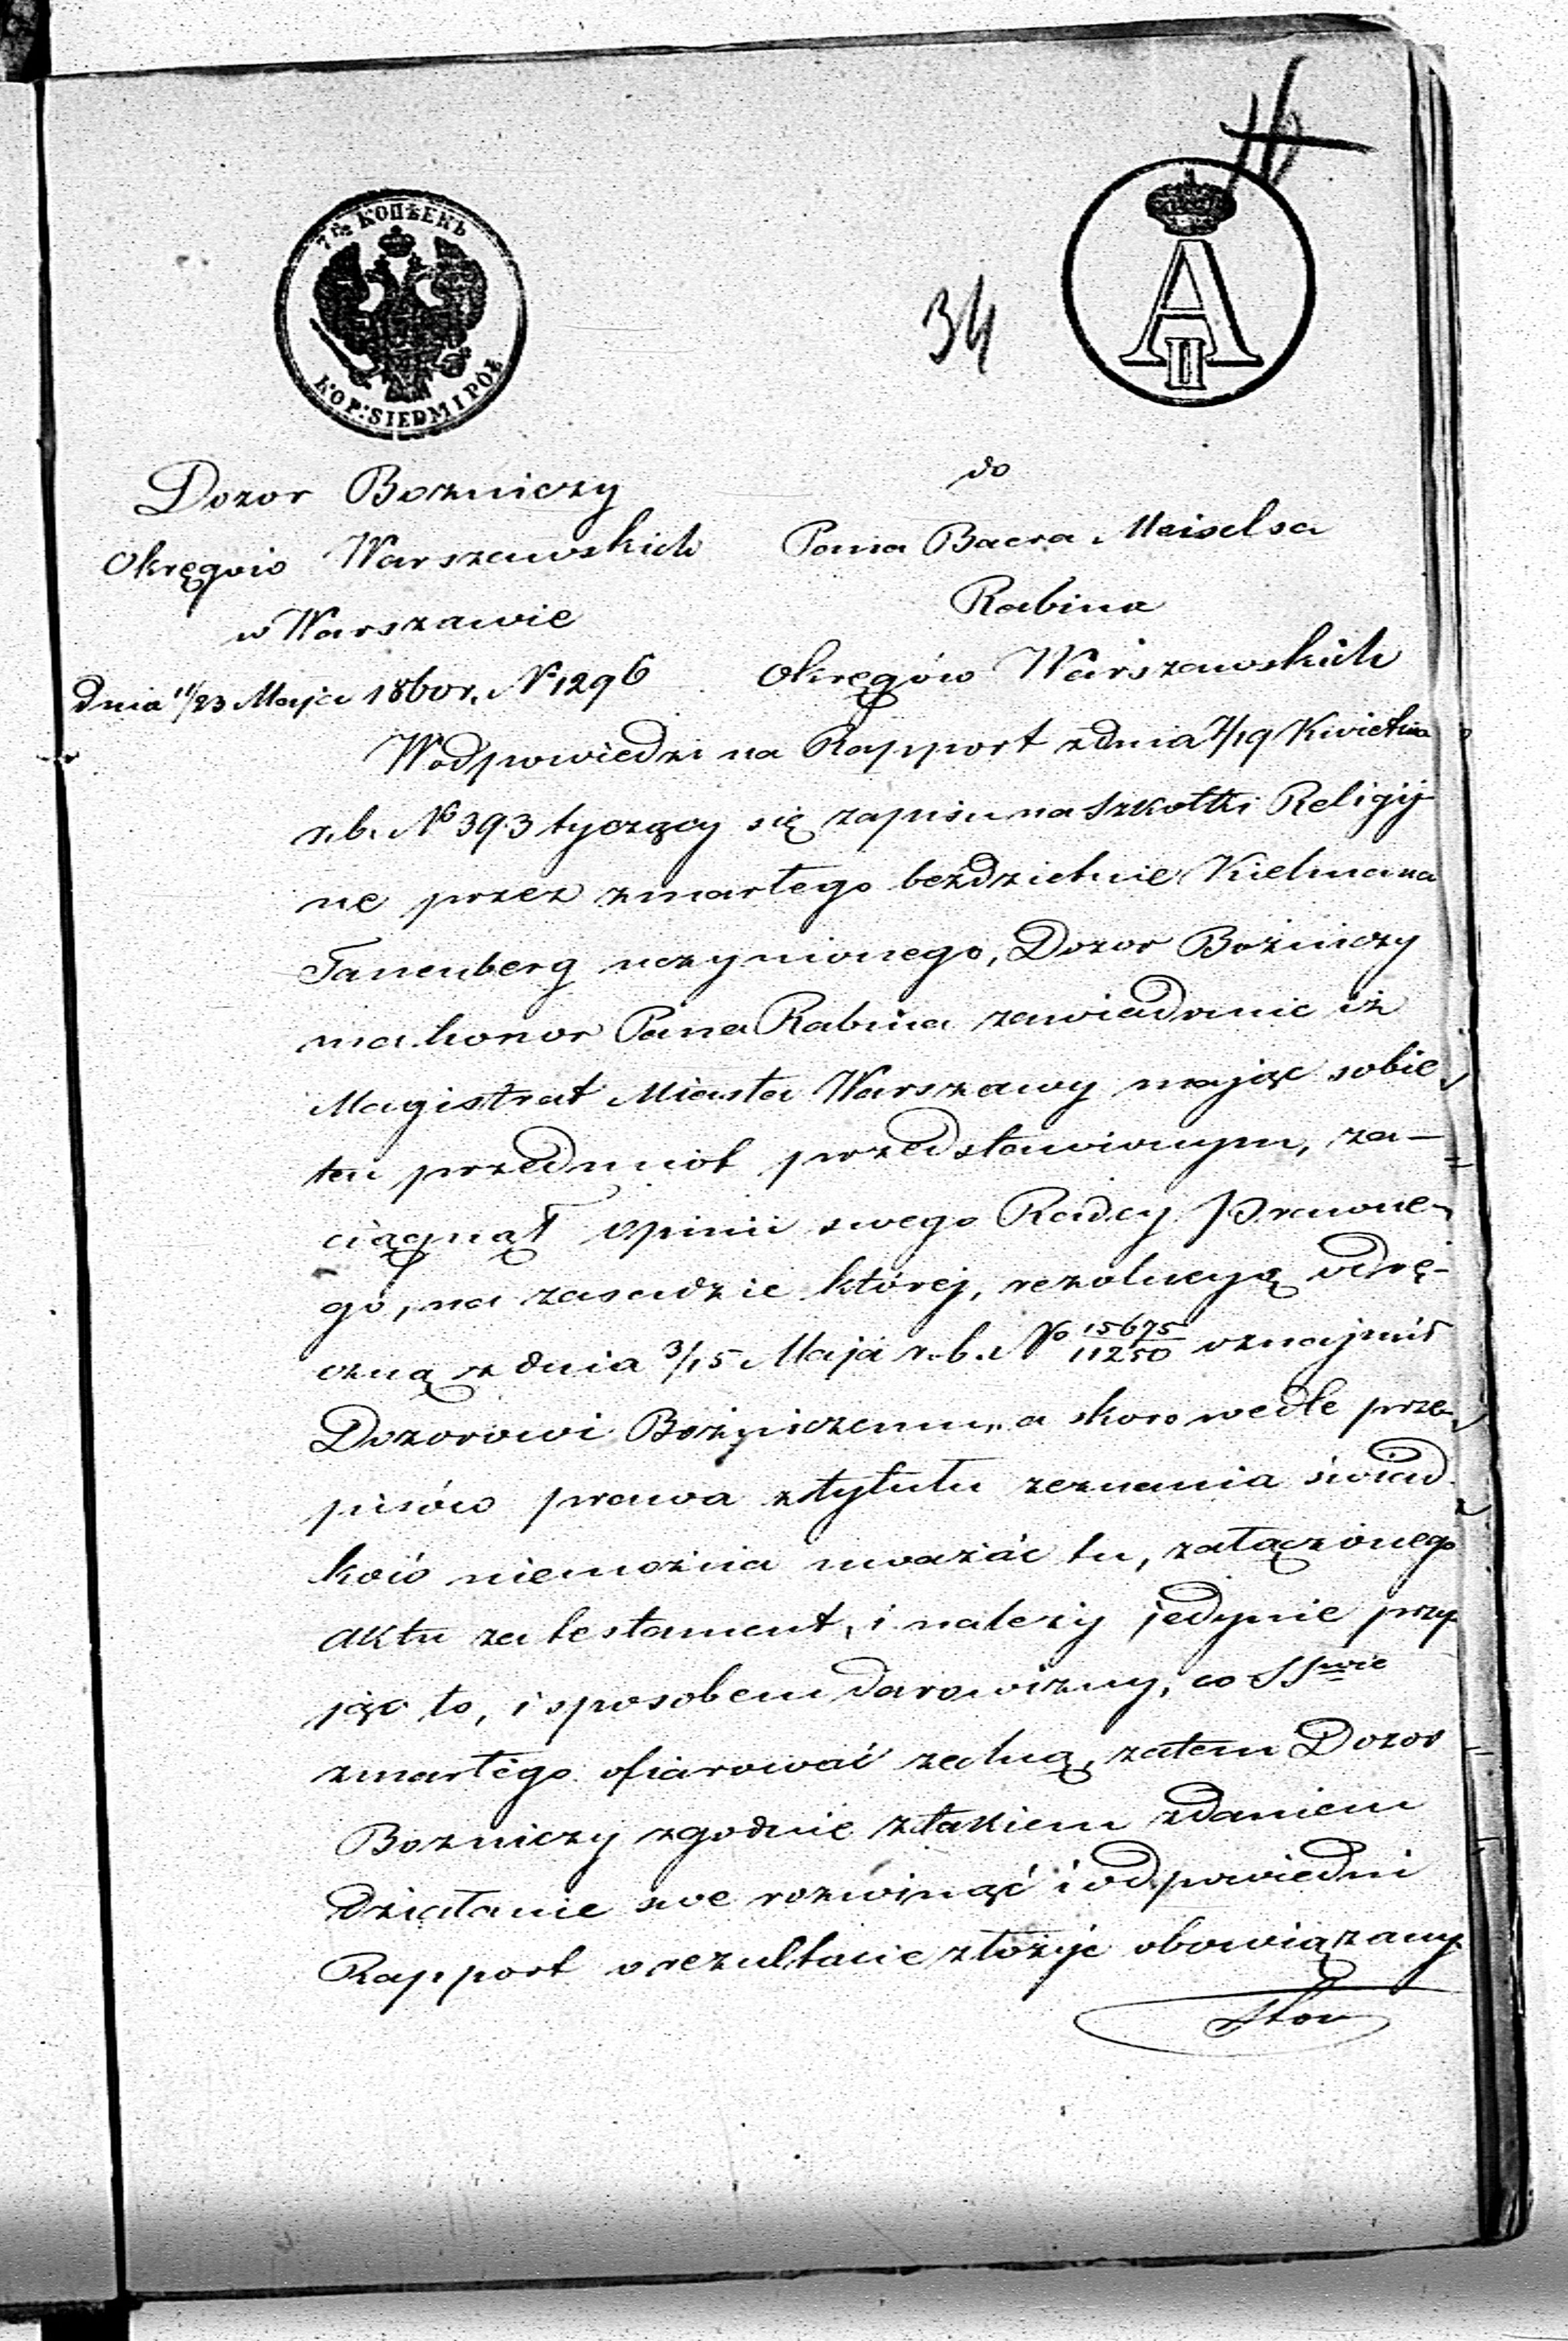 16
7½ КОПѢЕКЪ
KOP: SIEDM I PÓŁ
34
A
II
Dozor Bozniczy
Okręgów Warszawskich
w Warszawie
dnia 11/23 Maja 1860 r. N 1296
do
Pana Baera Meiselsa
Rabina
Okręgów Warszawskich
W odpowiedzi na Rapport z dnia 7/19 Kwietnia
r.b. No 393 tyczący się zapisu na Szkołki Religij
ne przez zmarłego bezdzietnie Kielmana
Tanenberg uczynionego, Dozor Bożniczy
ma honor Pana Rabina zawiadomic iż
Magistrat Miasta Warszawy mając sobie
ten przedmiot przedstawionym, za—
ciągnął opinii swego Radcy Prawne-
go, na zasadzie której, rezolucyą odrę-
czną z dnia 3/15 Maja r.b. No 15675/11250 oznajmił
Dozorowi Bożniczemu „a skoro wedle prze-
pisów prawa z tytułu zeznania świad
ków niemożna uważać tu, załączonego
aktu za testament, i należy jedynie przy
jąć to, i sposobem darowizny, co SSwie
zmarłego ofiarować zechcą, zatem Dozor
Bozniczy zgodnie z takiem zdaniem
działanie swe rozwinąć i odpowiedni
Rapport o rezultacie złożyć obowiązany